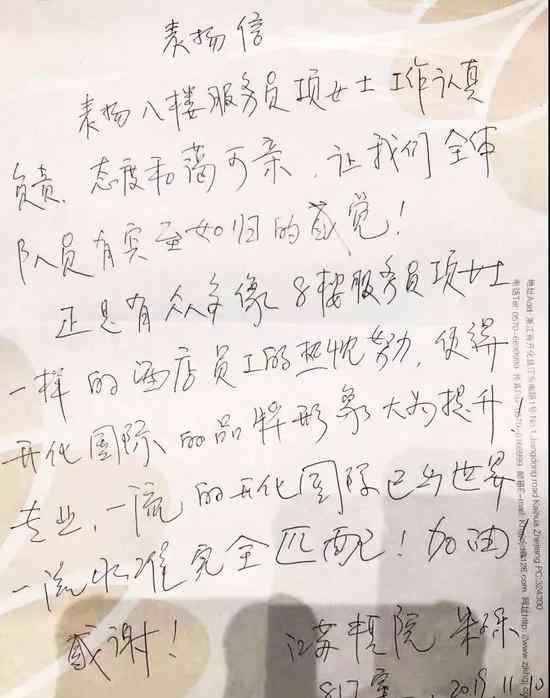 表扬信
表扬八楼服务员项女士工作认真
负责、态度和蔼可亲，让我们全体
队员有宾至如归的感觉！
正是有众多像8楼服务员项女士
一样的酒店员工的热忱努力，使得
开化国际的品牌形象大为提升！
专业、一流的开化国际已与世界
一流水准完全匹配！加油
感谢！
江苏 院 朱
817室 2019.11.10
地址Add: 浙江省开化县江东南路1号 No.1 Jiangdong road Kaihua Zhejiang PC:324300
电话Tel: 0570-